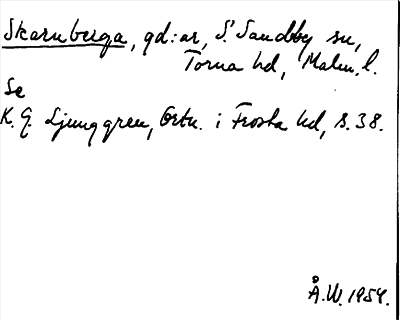 Skarnberga, gd:ar, S. Sandby sn,
Torna hd, Malm. l.
Se
K. G. Ljunggren, Ortn. i Frosta hd, s. 38.
Å.W. 1954.